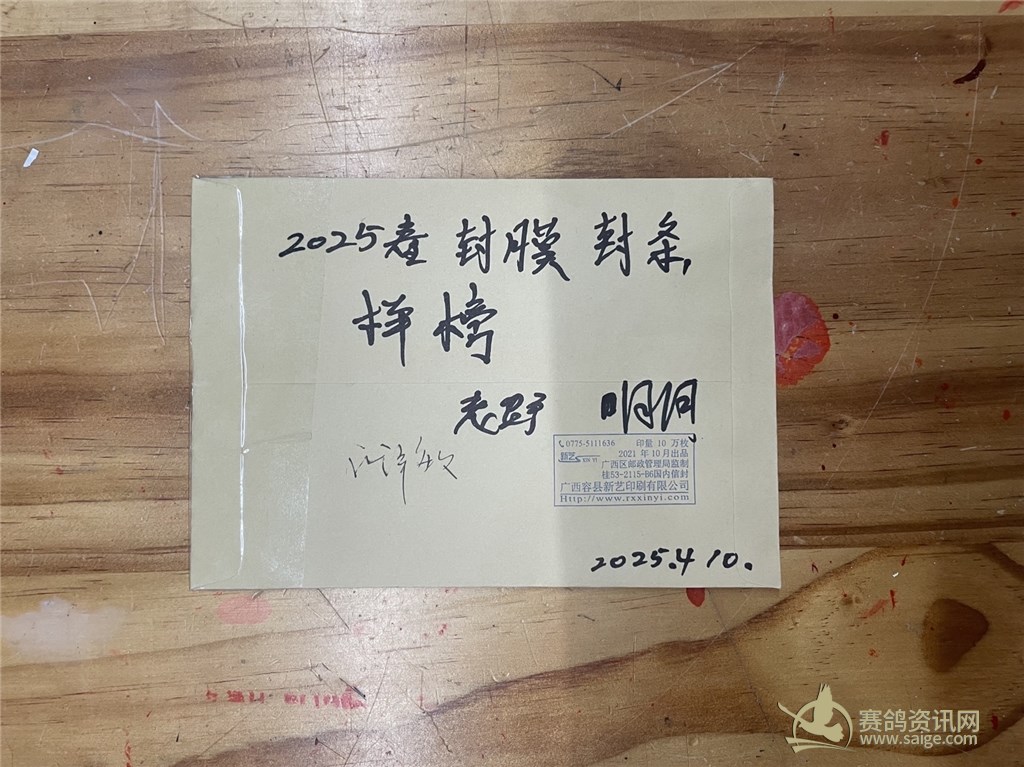 2025春 封膜 封条,
样榜
明月
0775-5111636 印量 10 万枚
新艺 2021 年 10 月出品
广西区邮政管理局监制
桂53-2115-B6国内信封
广西容县新艺印刷有限公司
Http://www.rxxinyi.com
2025.4 10.
赛鸽资讯网
www.saige.com